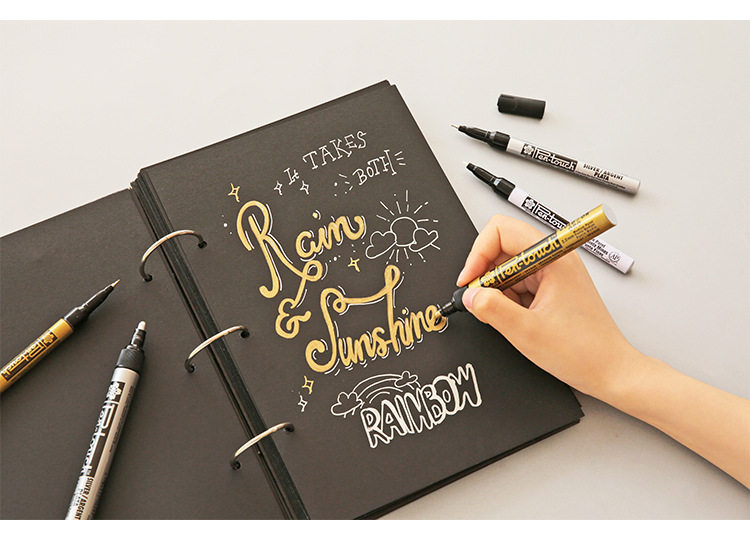 It TAKES
BOTH
Rain
&
Sunshine
RAINBOW
Pen-touch
SILVER / ARGENT
PLATA
Pen-touch
Pen-touch
Pen-touch
Pen-touch
SILVER / ARGENT